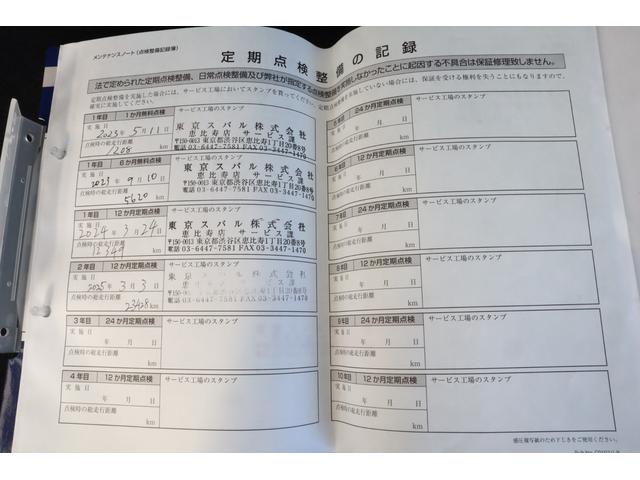 メンテナンスノート(点検整備記録簿)
定期点検整備の記録
法で定められた定期点検整備、日常点検整備及び弊社が指定する点検整備を実施しなかったことに起因する不具合は保証修理致しません。
定期点検整備を実施した場合には、サービス工場においてスタンプを貰ってください。定期点検整備を実施していない場合には、保証を受ける権利を失うことにもなりますので、
確実に実施してください。
1年目 1か月無料点検 サービス工場のスタンプ
実施日
2023年5月11日
点検時の総走行距離
1208 km
東京スバル株式会社
恵比寿店 サービス課
〒150-0013 東京都渋谷区恵比寿1丁目20番8号
電話 03-6447-7581 FAX 03-3447-1470
1年目 6か月無料点検 サービス工場のスタンプ
実施日
2023年9月10日
点検時の総走行距離
5620 km
東京スバル株式会社
恵比寿店 サービス課
〒150-0013 東京都渋谷区恵比寿1丁目20番8号
電話 03-6447-7581 FAX 03-3447-1470
1年目 12か月定期点検 サービス工場のスタンプ
実施日
2024年3月24日
点検時の総走行距離
12347 km
東京スバル株式会社
恵比寿店 サービス課
〒150-0013 東京都渋谷区恵比寿1丁目20番8号
電話 03-6447-7581 FAX 03-3447-1470
2年目 12か月定期点検 サービス工場のスタンプ
実施日
2025年3月3日
点検時の総走行距離
23428 km
東京スバル株式会社
〒150-0013 東京都渋谷区恵比寿1丁目20番8号
電話 03-6447-7581 FAX 03-3447-1470
3年目 24か月定期点検 サービス工場のスタンプ
実施日
年 月 日
点検時の総走行距離
km
4年目 12か月定期点検 サービス工場のスタンプ
実施日
年 月 日
点検時の総走行距離
km
24か月定期点検 サービス工場のスタンプ
実施日
年 月 日
点検時の総走行距離
km
6年目 12か月定期点検 サービス工場のスタンプ
実施日
年 月 日
点検時の総走行距離
km
7年目 24か月定期点検 サービス工場のスタンプ
実施日
年 月 日
点検時の総走行距離
km
8年目 12か月定期点検 サービス工場のスタンプ
実施日
年 月 日
点検時の総走行距離
km
9年目 24か月定期点検 サービス工場のスタンプ
実施日
年 月 日
点検時の総走行距離
km
10年目 12か月定期点検 サービス工場のスタンプ
実施日
年 月 日
点検時の総走行距離
km
感圧複写紙のため下じきをご使用ください。